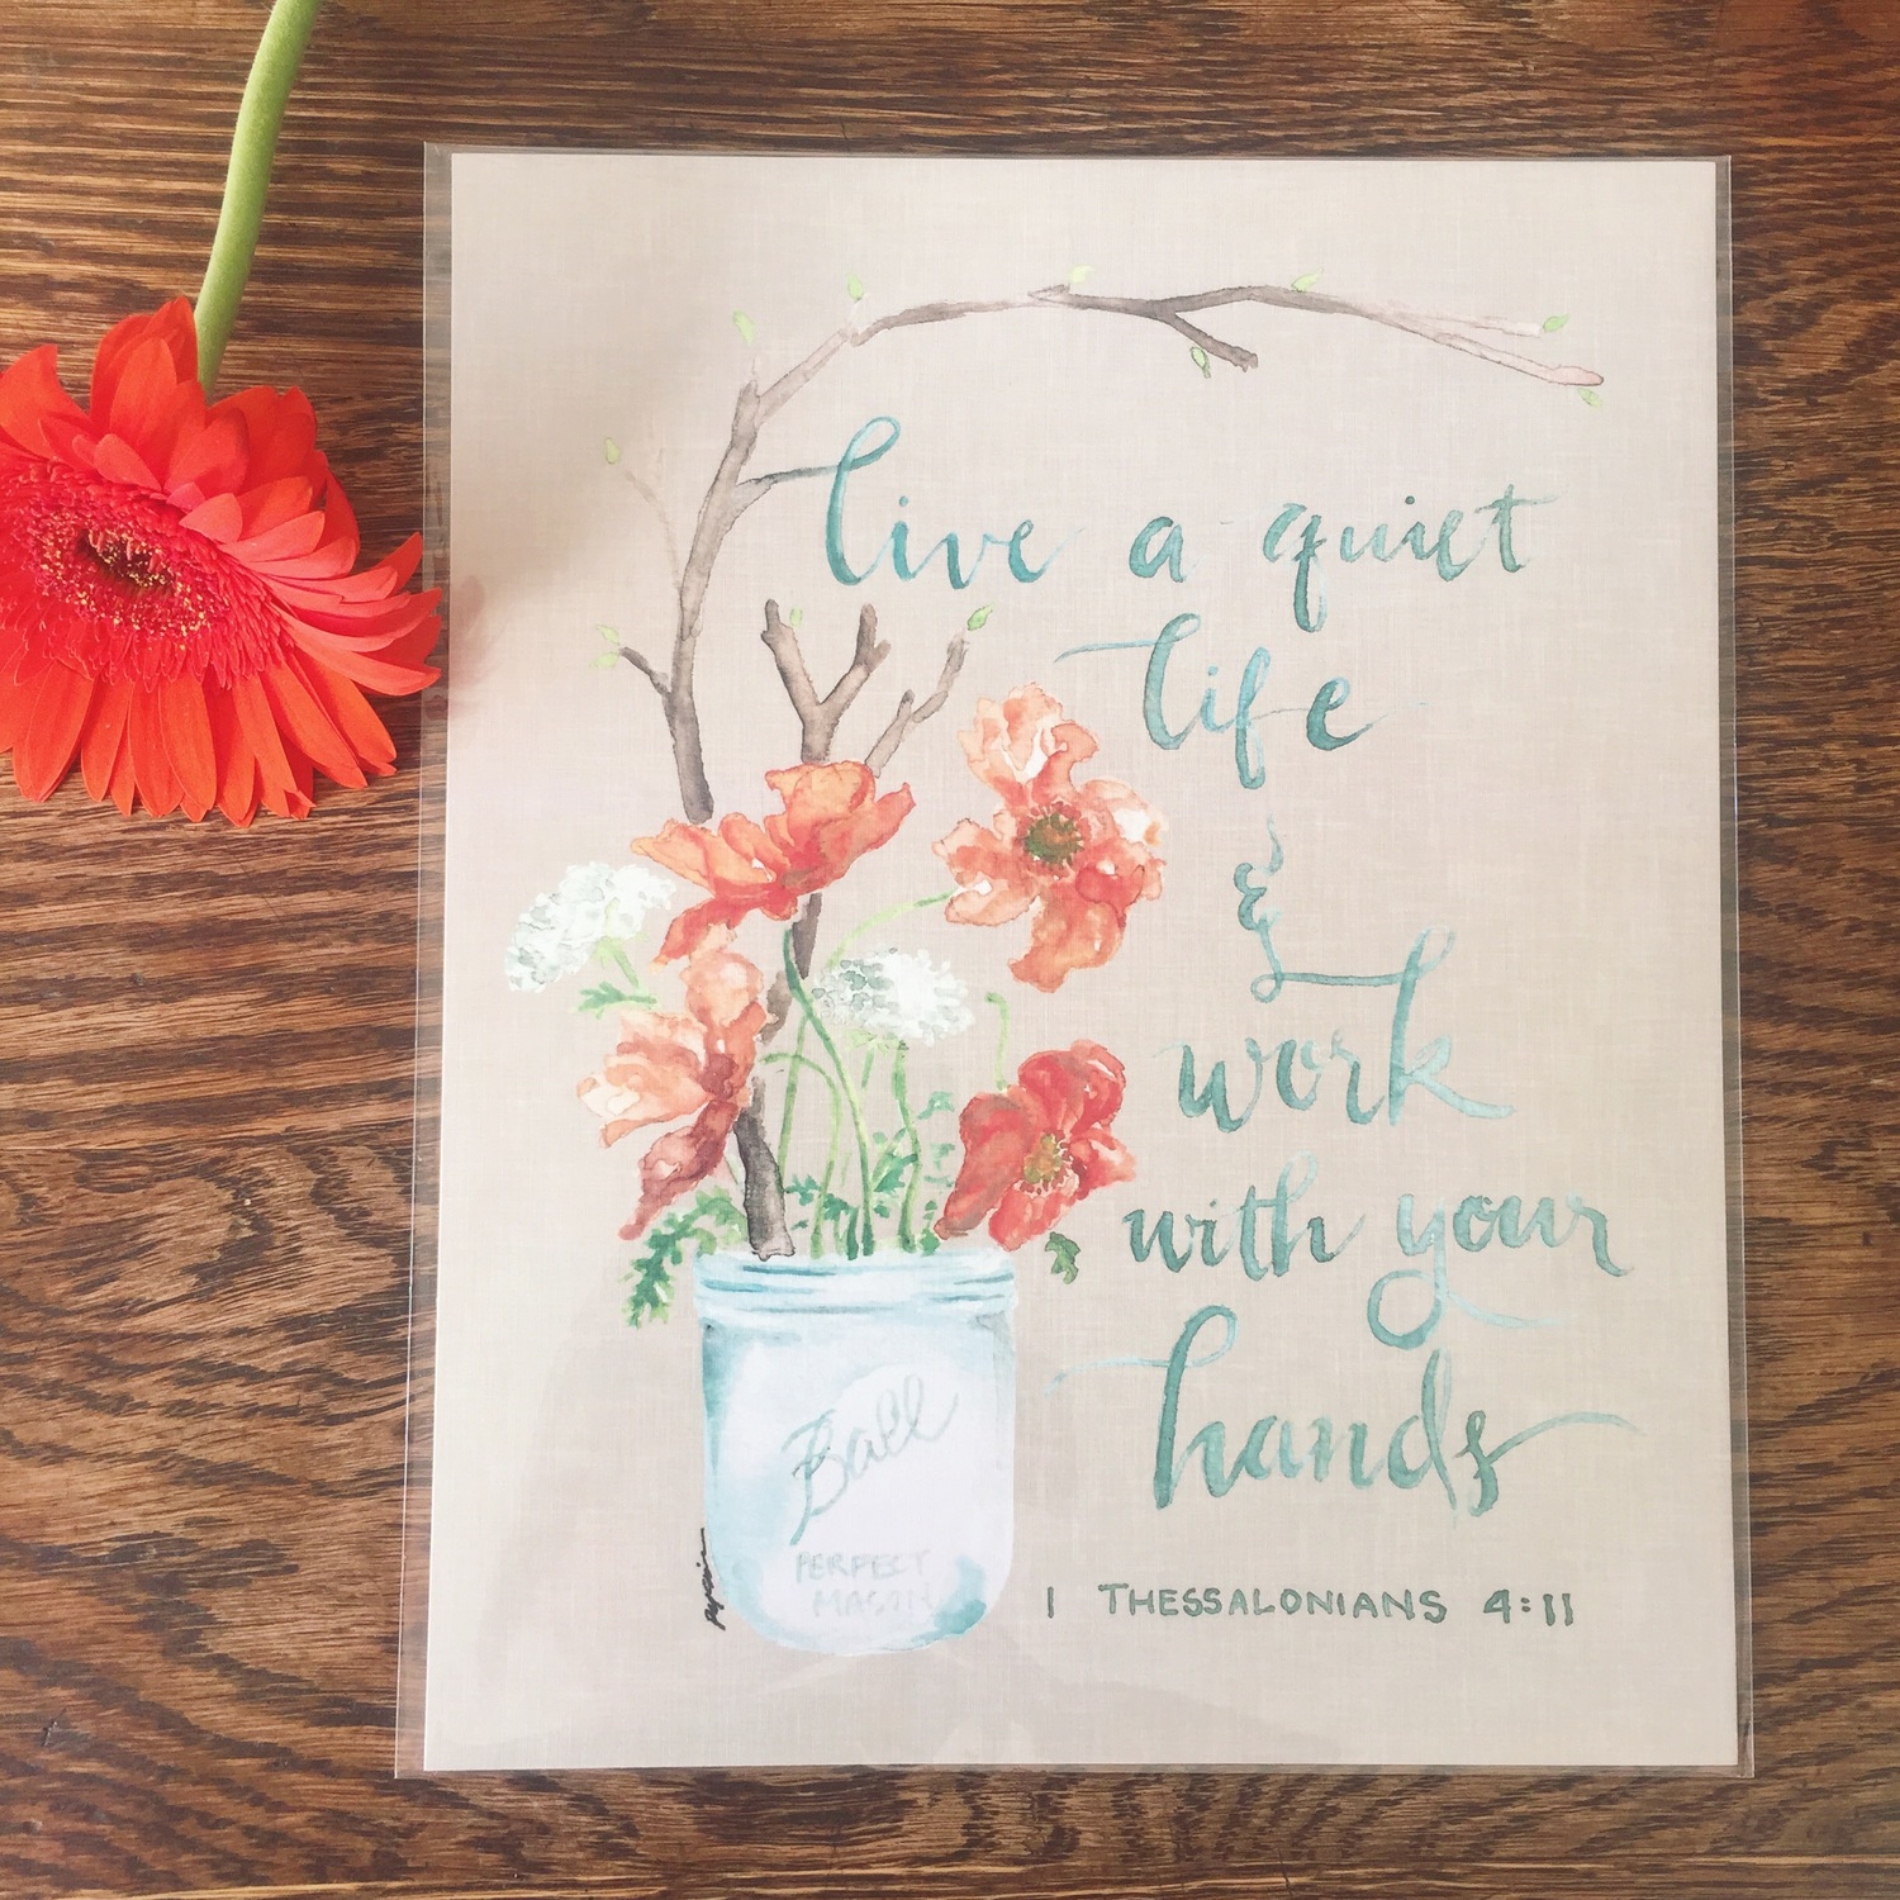 live a quiet
life
&
work
with your
hands
Ball
PERFECT
MASON
1 THESSALONIANS 4:11